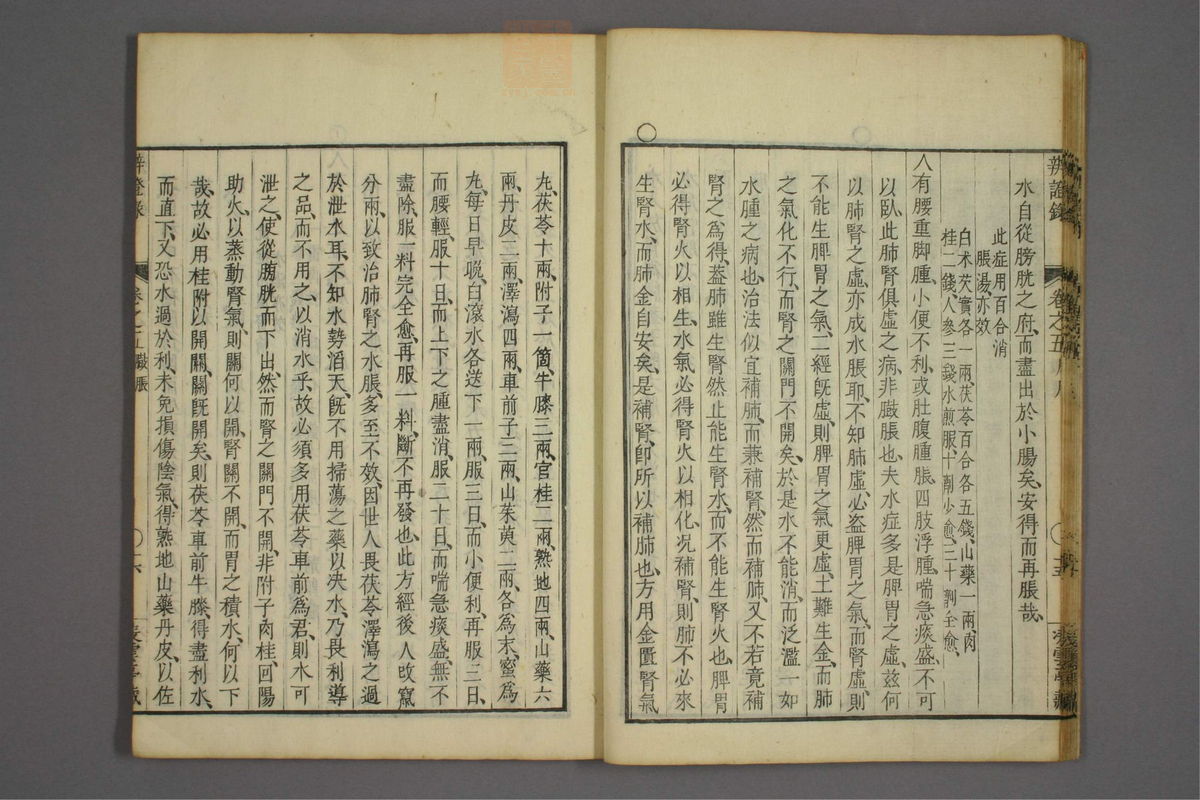 辨證錄 卷之五
水自從膀胱之府、而盡出於小腸矣、安得而再脹哉、
此症用百合消
脹湯亦效
白朮芡實各一兩茯苓百合各五錢、山藥一兩肉
桂二錢人參三錢水煎服、十劑少愈、三十劑全愈、
人有腰重脚腫、小便不利、或肚腹腫脹、四肢浮腫、喘急痰盛、不可
以臥、此肺腎俱虛之病、非臌脹也、夫水症多是脾胃之虛、茲何
以肺腎之虛、亦成水脹耶、不知肺虛、必盜脾胃之氣、而腎虛、則
不能生脾胃之氣、二經旣虛、則脾胃之氣更虛、土難生金、而肺
之氣化不行、而腎之關門不開矣、於是水不能消、而泛濫一如
水腫之病也、治法似宜補肺、而兼補腎、然而補肺、又不若竟補
腎之爲得、蓋肺雖生腎、然止能生腎水、而不能生腎火也、脾胃
必得腎火以相生、水氣必得腎火以相化、况補腎、則肺不必來
生腎水、而肺金自安矣、是補腎卽所以補肺也、方用金匱腎氣
丸、茯苓十兩、附子一箇、牛膝三兩、官桂二兩、熟地四兩、山藥六
兩、丹皮二兩、澤瀉四兩、車前子三兩、山茱萸二兩、各爲末、蜜爲
丸、每日早晚、白滾水各送下一兩、服三日、而小便利、再服三日、
而腰輕、服十日、而上下之腫盡消、服二十日、而喘急痰盛、無不
盡除、服一料完全愈、再服一料、斷不再發也、此方經後人改竄
分兩、以致治肺腎之水脹、多至不效、因世人畏茯苓澤瀉之過
於泄水耳、不知水勢滔天、旣不用掃蕩之藥以决水、乃畏利導
之品、而不用之、以消水乎、故必須多用茯苓車前爲君、則水可
泄之、使從膀胱而下出、然而腎之關門不開、非附子肉桂、回陽
助火、以蒸動腎氣、則關何以開、腎關不開、而胃之積水、何以下
哉、故必用桂附以開關、關旣開矣、則茯苓車前牛膝、得盡利水、
而直下、又恐水過於利、未免損傷陰氣、得熟地山藥丹皮、以佐
辨證錄 卷之五 臌脹